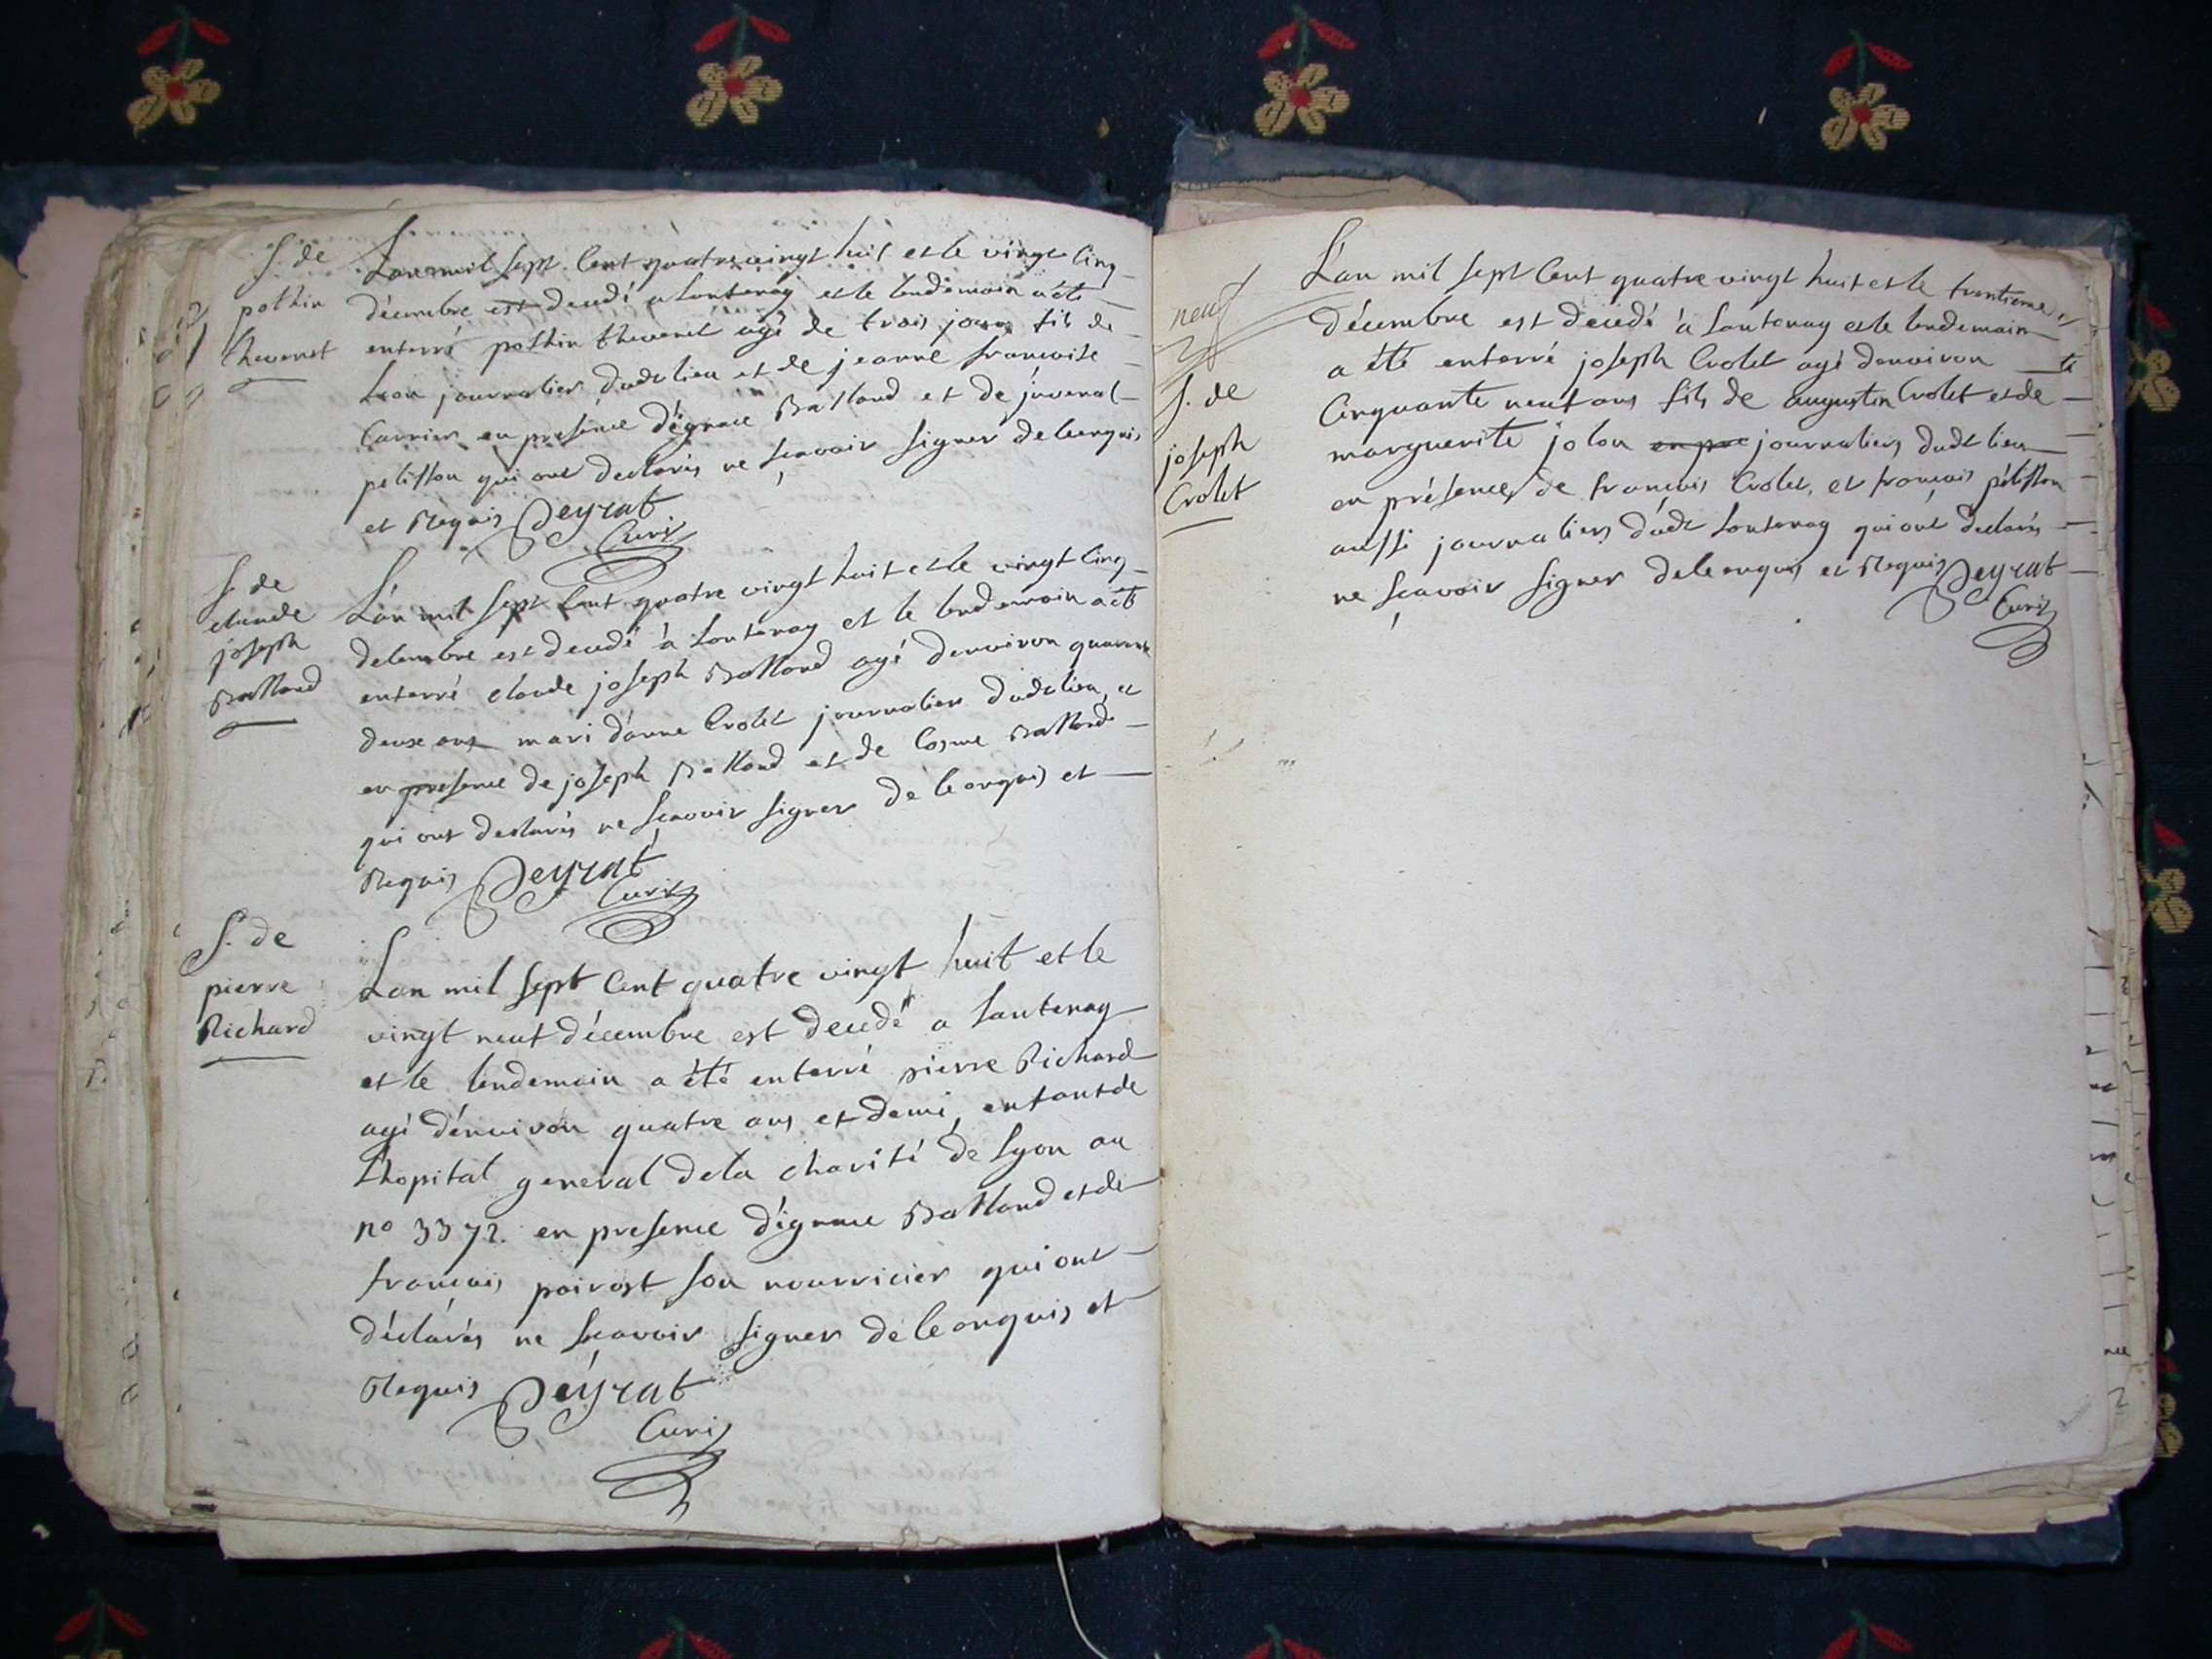 S. de
pothin
thevenet
L'an mil sept cent quatre vingt huit et le vingt cinq
décembre est decedé a Lantenay et le lendemain a été
enterré pothin thevenet agé de trois jours fils de
Leon journalier dudt lieu et de jeanne francoise
Carrier en presence d'ignace Balland et de juvenal
pelisson qui ont declarés ne sçavoir signer de ce enquis
et Requis Deyrat
Curé
S. de
claude
joseph
Balland
L'an mil sept cent quatre vingt huit et le vingt cinq
decembre est decedé à Lantenay et le lendemain a été
enterré claude joseph Balland agé denviron quarante
deux ans mari d'anne Crolet journalier dudt lieu et
en presence de joseph Balland et de Cosme Balland
qui ont declarés ne sçavoir signer de ce enquis et
Requis Deyrat
Curé
S. de
pierre
Richard
L'an mil sept cent quatre vingt huit et le
vingt neuf décembre est decedé a Lantenay
et le lendemain a été enterré pierre Richard
agé d'énviron quatre ans et demi, enfant de
L'hopital general de la charité de Lyon au
no 3372. en presence d'ignace Balland et de
francois poirost son nourricier qui ont
déclarés ne sçavoir signer de ce enquis et
Requis Deyrat
Curé
neuf
S. de
joseph
Crolet
L'an mil sept cent quatre vingt huit et le trentieme
décembre est decedé à Lantenay et le lendemain
a été enterré joseph Crolet agé denviron
Cinquante neuf ans fils de augustin Crolet et de
marguerite jolon en pre journaliers dudt lieu
en présence de francois Crolet, et francois pélisson
aussi journaliers dudt Lantenay qui ont declarés
ne sçavoir signer de ce enquis et Requis Deyrat
Curé